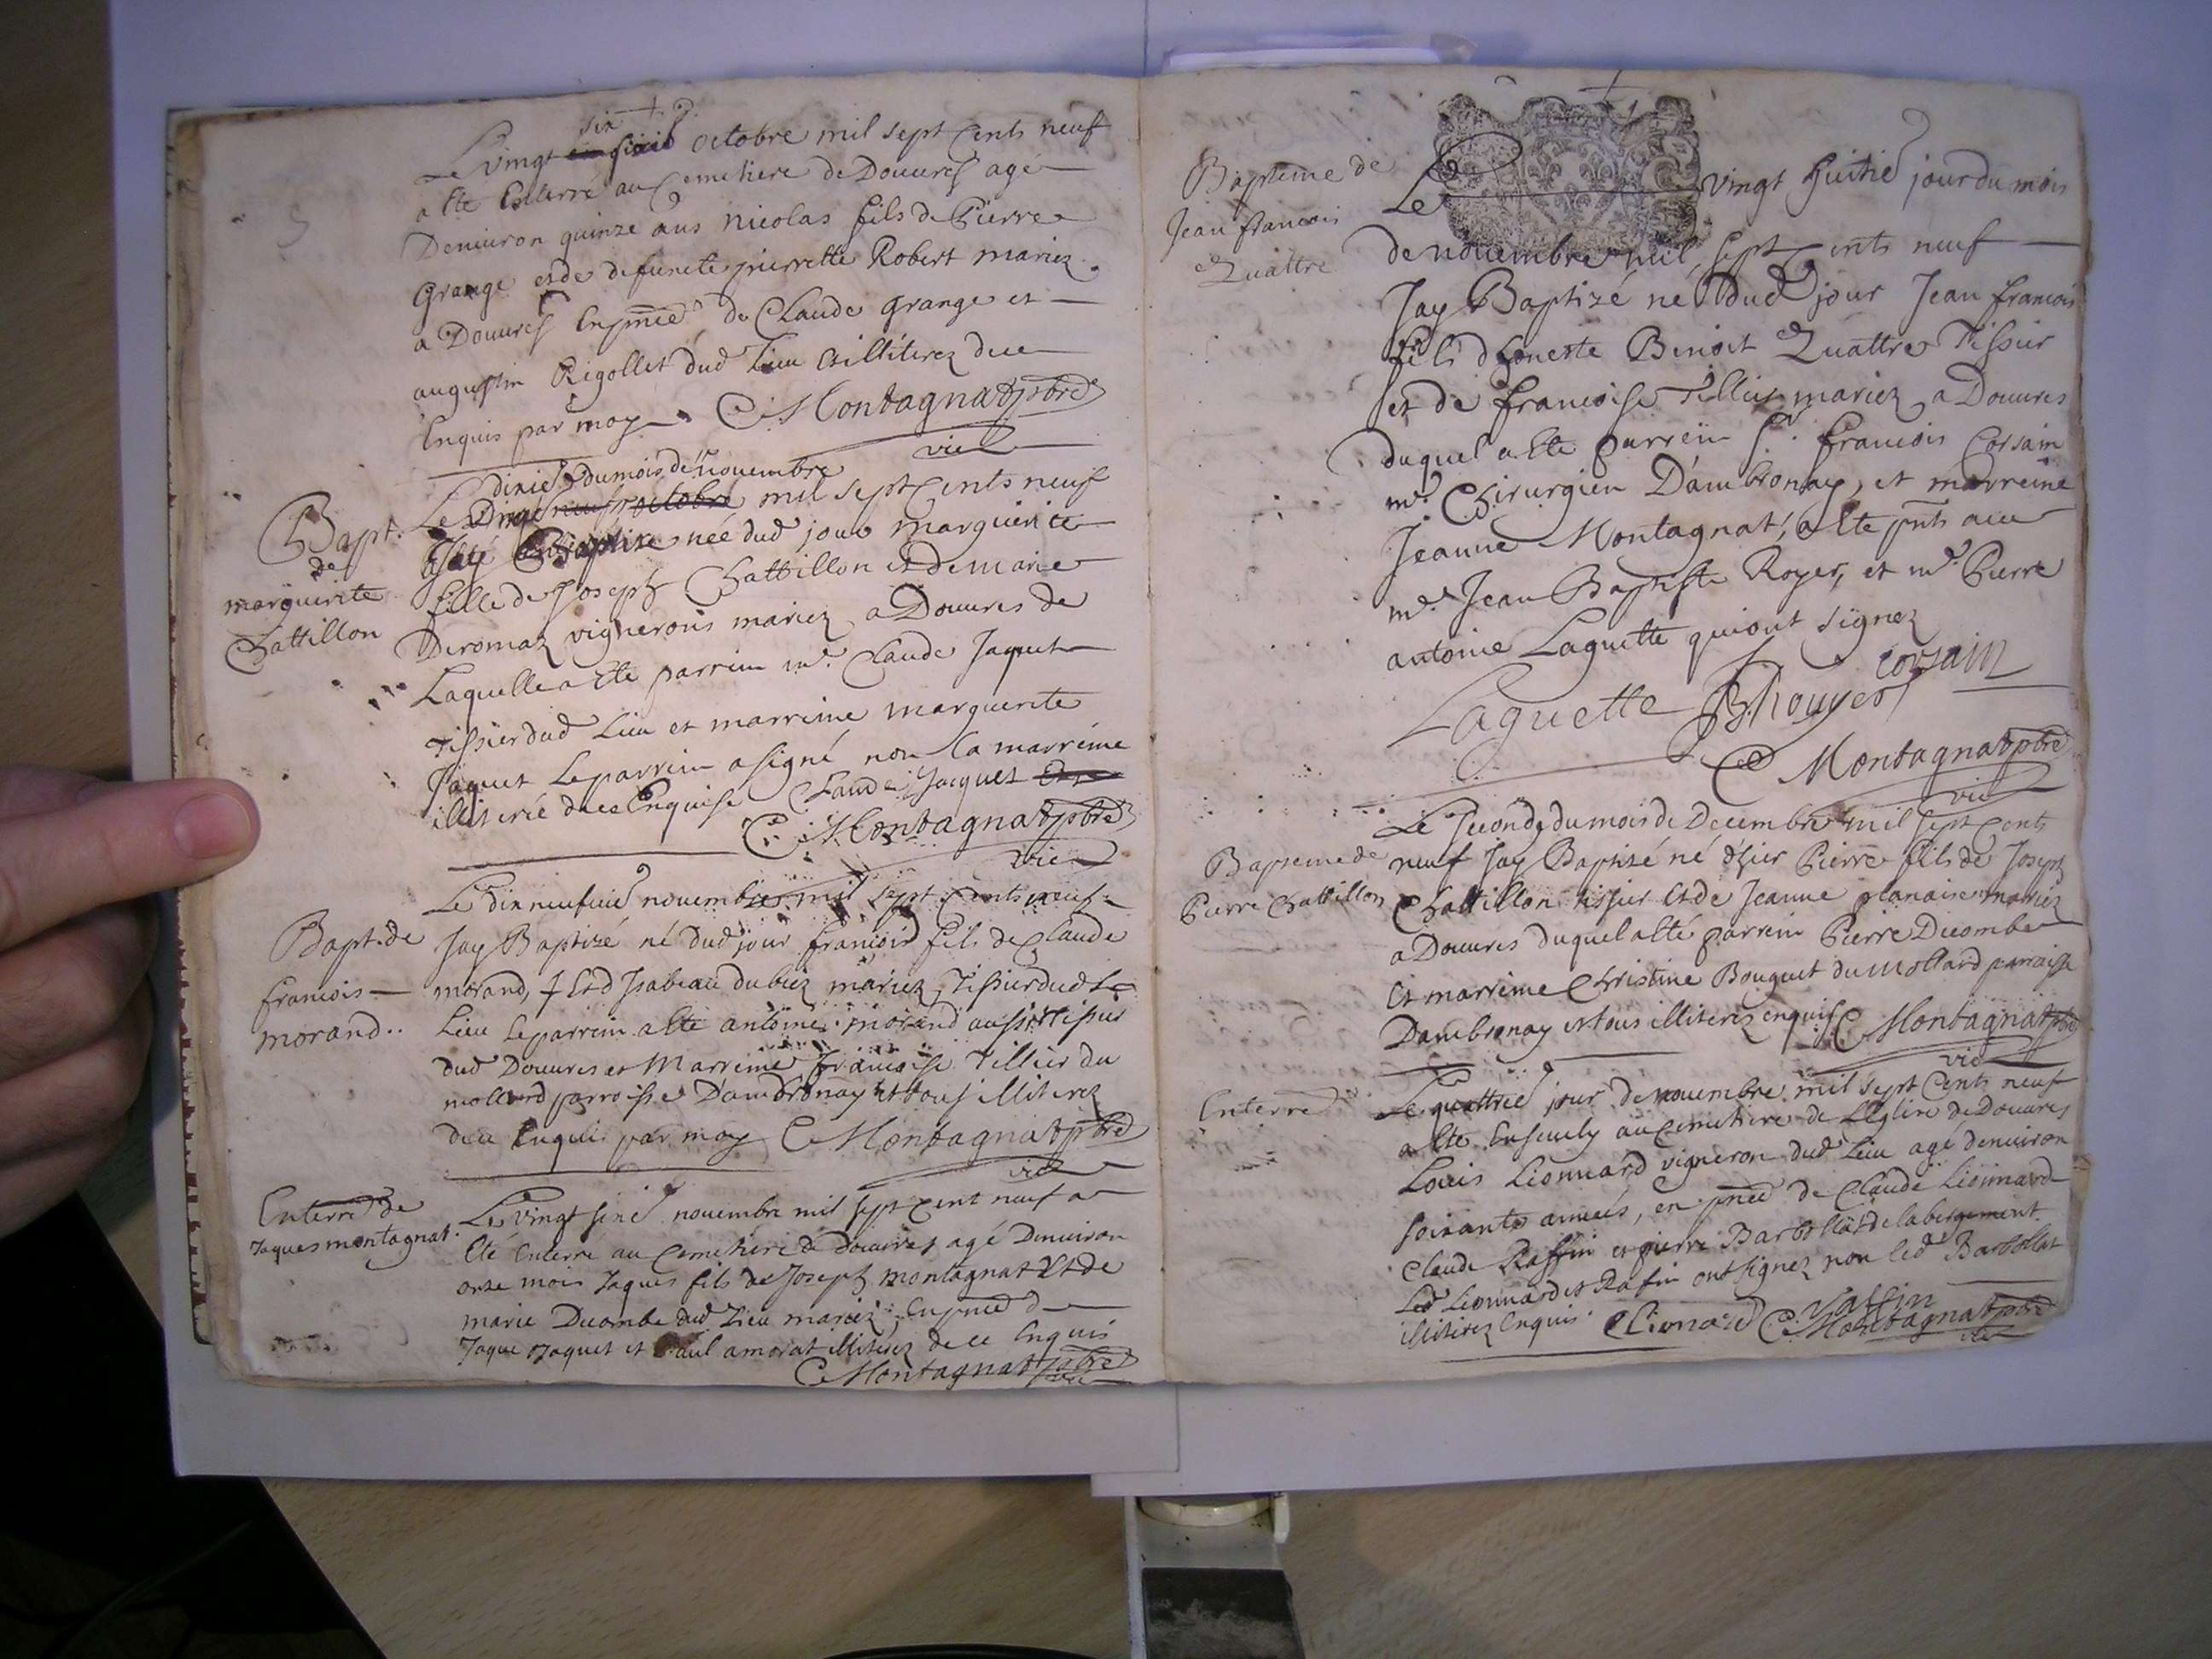 six
Le vingt octobre mil sept Cents neuf
a Ete Enterré au Cemetiere de Douures agé
Denuiron quinze ans nicolas fils de Pierre
Grange et de defuncte pierrette Robert mariez
a Douures En pnce de Claude grange et
augustin Rigollet dud Lieu illiterez dece
Enquis par moy C Montagnat pbre
vic
dixie du mois de nouembre
Le vingt neuf octobre mil sept Cents neuf
Bapt.
de
marguerite
Chattillon
née dud jour marguerite
fille de Joseph Chattillon et de marie
Deromaz vignerons mariez a Douures de
Laquelle a Ete parrein mr. Claude Jaquet
Tissier dud Lieu et marreine marguerite
Jaquet Le parrein a signé non la marreine
illiterée dece Enquise Claude Jacquet
C Montagnat pbre
vic
Bapt. de
francois
morand..
Le dix neufuie nouembre mil sept Cents neuf
Jay Baptizé né dud jour francois fils de Claude
morand, Et d Isabeau dubiez mariez, Tissier dud
Lieu le parrein a Ete antoine morand aussi tissier
dud Douures et Marreine francoise Tillier du
mollard parroisse D'ambronay Et tous illiterez
dece Enquis par moy C Montagnat pbre
vic
Enterre de
Jaques montagnat.
Le vingt sixie nouembre mil sept Cent neuf a
Eté Enterré au Cemetiere de douures agé Denuiron
onze mois Jaques fils de Joseph montagnat Et de
marie Ducombe dud Lieu mariez, En pnce de
Jaque Jaquet et Paul amorat illiterez de ce Enquis
C Montagnat pbre
vic
Bapteme de
Jean francois
Quattre
Le vingt huitie jour du mois
de nouembre mil sept Cents neuf
Jay Baptizé né dud jour Jean francois
fils dhoneste Benoit Quattre Tissier
et de francoise Tillier mariez a Douures
duquel a Ete parrein Sr. francois Corsain
mr. Chirurgien D'ambronay, et marreine
Jeanne Montagnat, a Ete pnts auec
mr. Jean Baptiste Royer, et mr. Pierre
antoine Laguette qui ont signez
corsain
Laguette JBRouyer
C Montagnat pbre
vic
Bapteme de
Pierre Chattillon
Le second du mois de Decembre mil sept Cents
neuf Jay Baptizé né d'hier Pierre fils de Joseph
Chattillon tissier Et de Jeanne planaire mariez
a Douures duquel a Eté parrein Pierre Ducombe
Et marreine Christine Bouquet du mollard parroisse
Dambronay et tous illiterez enquis C Montagnat pbre
vic
Enterre
Le quattrie jour de nouembre mil sept Cents neuf
a Ete Enseuely au Cemetiere de L'Eglise de Douures
Louis Lionnard vigneron dud Lieu agé denuiron
soixante années, en pnce de Claude Lionnard
Claude Raffin et pierre Barbollat de labergement
Led Lionnard et Rafin ont signez non led Barbollat
illiterez Enquis CLionard Raffin
C Montagnat pbre
vic